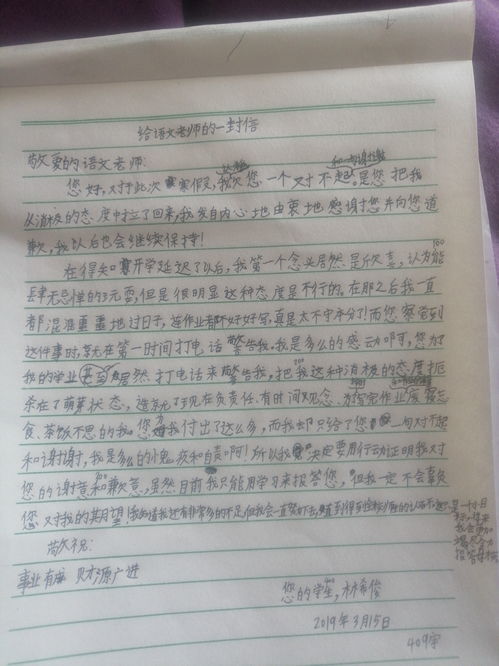 给语文老师的一封信
敬爱的语文老师:
您好,对于此次寒假,我欠您一个对不起和一句谢谢,是您把我
从消极的态度中拉了回来,我发自内心地由衷地感谢您并向您道
歉,我以后也会继续保持!
在得知开学延迟了以后,我第一个念头居然是欣喜,认为能
肆无忌惮的玩耍,但是很明显这种态度是不行的。在那之后我一直
都浑浑噩噩地过日子,连作业都不好好写,真是太不守本分了!而您察觉到
这件事时,就在第一时间打电话警告我。我是多么的感动啊,您为了
我的学业甚至居然打电话来警告我,把我这种消极的态度扼
杀在了萌芽状态,造就了现在负责任、有时间观念、为按时完作业废寝忘
食、茶饭不思的我。您为我付出了这么多,而我却只给了您一句对不起
和谢谢,我是多么的愧疚和自责啊!所以我决定要用行动证明我对
您的谢意和歉意,虽然目前我只能用学习来报答您,但我一定不会辜负
您对我的期望!我知道我还有非常多的不足,但我会一直努力下去,直到得到您的认可
敬祝:
事业有成 财源广进
您的学生,林希俊
2019年3月15日
409字